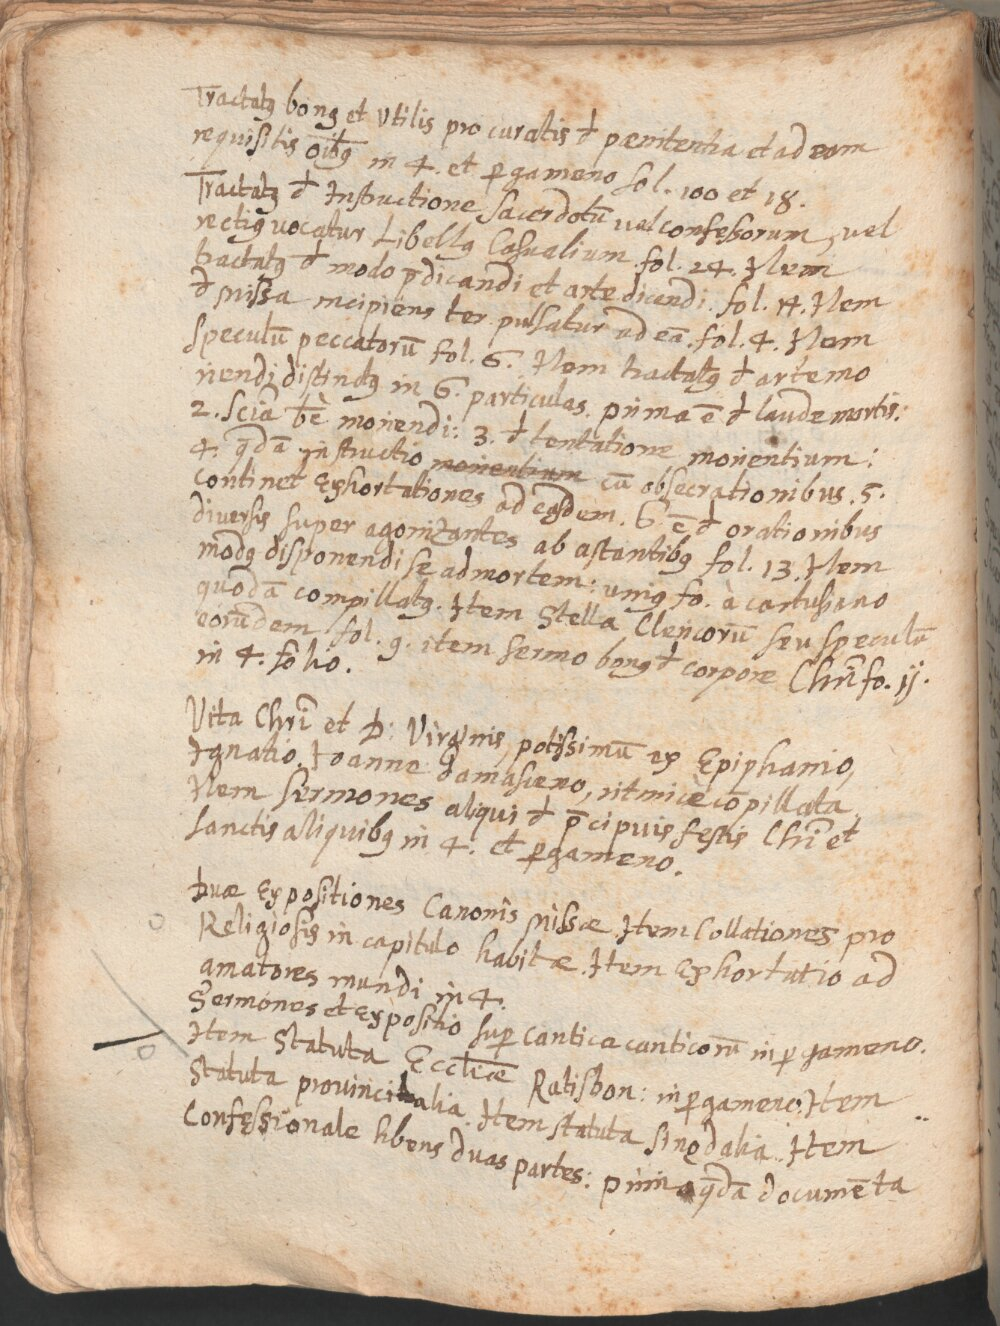 Tractatꝰ bonꝰ et Vtilis pro curatis đ pænitentia et ad eam
requisitis o͞ibꝰ in 4. et ꝑgameno fol. 100 et 18.
Tractatꝰ đ Instructione sacerdotū vel confessorum, vel
rectiꝰ vocatur Libellꝰ Casualium fol. 24. Item
tractatꝰ đ modo p̄dicandi et arte dicendi. fol. 14. Item
đ Missa incipiens ter pulsatur ad eā. fol. 4. Item
speculū peccatorū fol. 6. Item tractatꝰ đ arte mo
riendi distinctꝰ in 6. particulas. prima ē đ laude mortis:
2. Scīa b̄e moriendi: 3. đ tentatione morientium:
4. q̄dā instructio morientium cū obsecrationibus. 5.
continet exhortationes ad eāsdem. 6. ē đ orationibus
diversis super agonizantes ab astantibꝰ fol. 13. Item
modꝰ disponendi se ad mortem: uniꝰ fo. à cartusiano
quodā compillatꝰ. Item Stella Clericorū seu speculū
eorundem fol. 9. item sermo bonꝰ đ corpore Chr̄i fo. ij.
in 4. folio.
Vita Chr̄i et D: Virginis, potissimū ex Epiphanio,
Ignatio, Joanne damasceno, ritmicè cōpillata,
Item sermones aliqui đ p̄cipuis festis Chr̄i et
sanctis aliquibꝰ in 4. et ꝑgameno.
Duæ Expositiones Canonis Missæ Item Collationes pro
Religiosis in capitulo habitæ. Item Exhortatio ad
amatores mundi in 4.
Sermones et Expositio suꝑ cantica canticorū in ꝑgameno.
Item Statuta Eccl̄iæ Ratisbon: in ꝑgameno. Item
Statuta provincialia. Item statuta sinodalia. Item
Confessionale hbens duas partes: prima q̄dā documēta